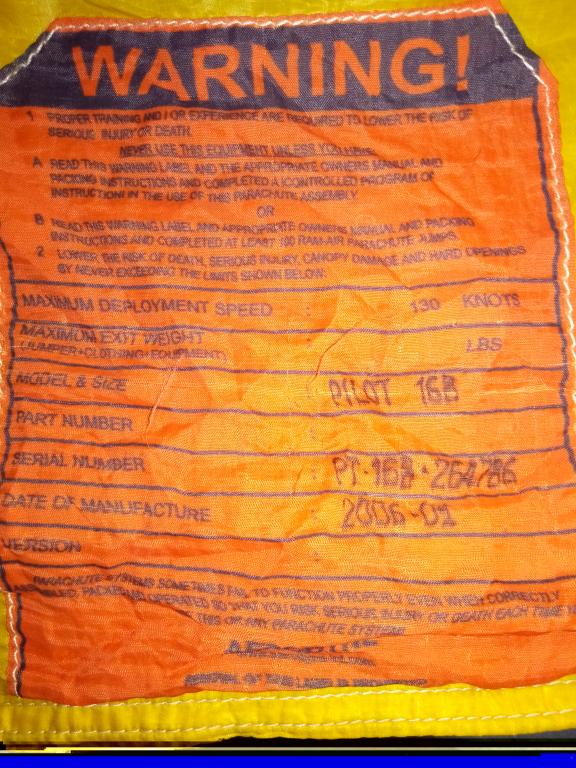 WARNING!
1 PROPER TRAINING AND / OR EXPERIENCE ARE REQUIRED TO LOWER THE RISK OF
SERIOUS INJURY OR DEATH.
NEVER USE THIS EQUIPMENT UNLESS YOU HAVE:
A READ THIS WARNING LABEL AND THE APPROPRIATE OWNERS MANUAL AND
PACKING INSTRUCTIONS AND COMPLETED A CONTROLLED PROGRAM OF
INSTRUCTION IN THE USE OF THIS PARACHUTE ASSEMBLY
OR
B READ THIS WARNING LABEL AND APPROPRIATE OWNERS MANUAL AND PACKING
INSTRUCTIONS AND COMPLETED AT LEAST 100 RAM-AIR PARACHUTE JUMPS.
2 LOWER THE RISK OF DEATH, SERIOUS INJURY, CANOPY DAMAGE AND HARD OPENINGS
BY NEVER EXCEEDING THE LIMITS SHOWN BELOW:
MAXIMUM DEPLOYMENT SPEED : 130 KNOTS
MAXIMUM EXIT WEIGHT
(JUMPER+CLOTHING+EQUIPMENT) : LBS
MODEL & SIZE : PILOT 168
PART NUMBER :
SERIAL NUMBER : PT-168-
DATE OF MANUFACTURE : 2006-01
VERSION :
PARACHUTE SYSTEMS SOMETIMES FAIL TO FUNCTION PROPERLY EVEN WHEN CORRECTLY
PACKED AND OPERATED SO THAT YOU RISK SERIOUS INJURY OR DEATH EACH TIME
THIS OR ANY PARACHUTE SYSTEM!